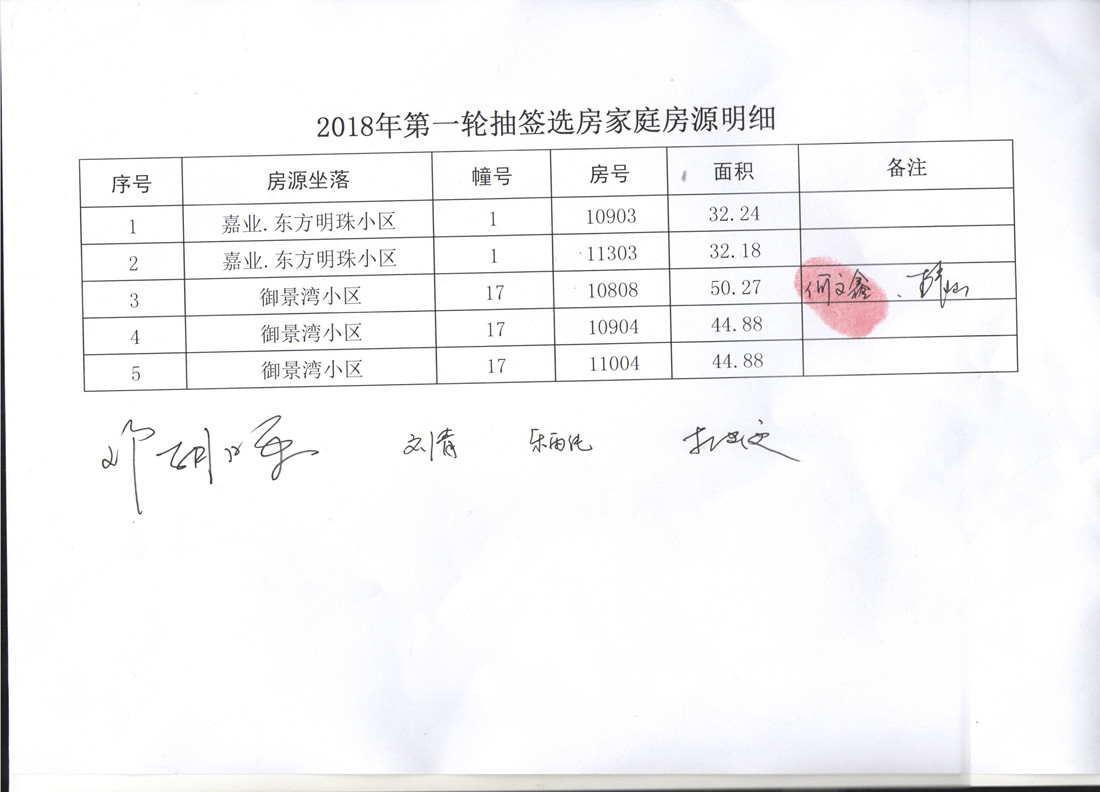 2018年第一轮抽签选房家庭房源明细
序号 房源坐落 幢号 房号 面积 备注
1 嘉业.东方明珠小区 1 10903 32.24
2 嘉业.东方明珠小区 1 11303 32.18
3 御景湾小区 17 10808 50.27 何文鑫
4 御景湾小区 17 10904 44.88
5 御景湾小区 17 11004 44.88
刘清